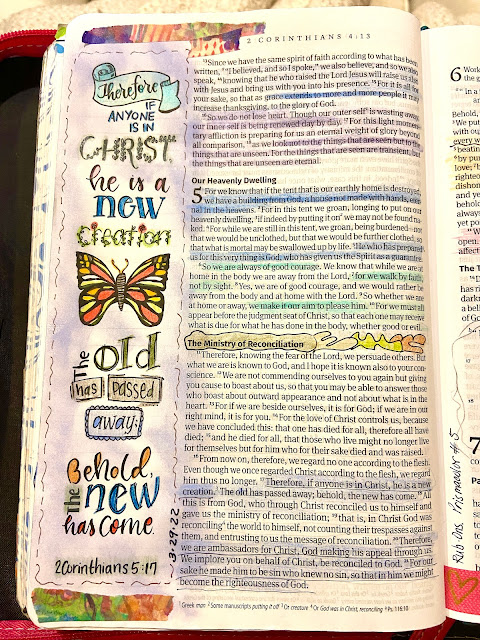 2 CORINTHIANS 4:13
Therefore
IF
ANYONE
IS IN
CHRIST,
he is a
new
Creation
The Old
has passed
away.
Behold,
The new
has come.
2 Corinthians 5:17
3-29-22
13Since we have the same spirit of faith according to what has been
written, "I believed, and so I spoke," we also believe, and so we also
speak, 14knowing that he who raised the Lord Jesus will raise us also
with Jesus and bring us with you into his presence. 15For it is all for
your sake, so that as grace extends to more and more people it may
increase thanksgiving, to the glory of God.
16So we do not lose heart. Though our outer self is wasting away,
our inner self is being renewed day by day. 17For this light momen-
tary affliction is preparing for us an eternal weight of glory beyond
all comparison, 18as we look not to the things that are seen but to the
things that are unseen. For the things that are seen are transient, but
the things that are unseen are eternal.
Our Heavenly Dwelling
5 For we know that if the tent that is our earthly home is destroyed,
we have a building from God, a house not made with hands, eter-
nal in the heavens. 2For in this tent we groan, longing to put on our
heavenly dwelling, 3if indeed by putting it on1 we may not be found na-
ked. 4For while we are still in this tent, we groan, being burdened—not
that we would be unclothed, but that we would be further clothed, so
that what is mortal may be swallowed up by life. 5He who has prepared
us for this very thing is God, who has given us the Spirit as a guarantee.
6So we are always of good courage. We know that while we are at
home in the body we are away from the Lord, 7for we walk by faith,
not by sight. 8Yes, we are of good courage, and we would rather be
away from the body and at home with the Lord. 9So whether we are
at home or away, we make it our aim to please him. 10For we must all
appear before the judgment seat of Christ, so that each one may receive
what is due for what he has done in the body, whether good or evil.
The Ministry of Reconciliation
11Therefore, knowing the fear of the Lord, we persuade others. But
what we are is known to God, and I hope it is known also to your con-
science. 12We are not commending ourselves to you again but giving
you cause to boast about us, so that you may be able to answer those
who boast about outward appearance and not about what is in the
heart. 13For if we are beside ourselves, it is for God; if we are in our
right mind, it is for you. 14For the love of Christ controls us, because
we have concluded this: that one has died for all, therefore all have
died; 15and he died for all, that those who live might no longer live
for themselves but for him who for their sake died and was raised.
16From now on, therefore, we regard no one according to the flesh.
Even though we once regarded Christ according to the flesh, we regard
him thus no longer. 17Therefore, if anyone is in Christ, he is a new
creation. The old has passed away; behold, the new has come. 18All
this is from God, who through Christ reconciled us to himself and
gave us the ministry of reconciliation; 19that is, in Christ God was
reconciling the world to himself, not counting their trespasses against
them, and entrusting to us the message of reconciliation. 20Therefore,
we are ambassadors for Christ, God making his appeal through us.
We implore you on behalf of Christ, be reconciled to God. 21For our
sake he made him to be sin who knew no sin, so that in him we might
become the righteousness of God.
6 Work
the g
Behold,
3We pu
with ou
every w
beatin
by pu
love; 7
righteo
dishon
and ye
behold
always
yet po
open.
affect
The T
has ri
a belie
of God
7
Rub Ons: Prismacolor #: 5